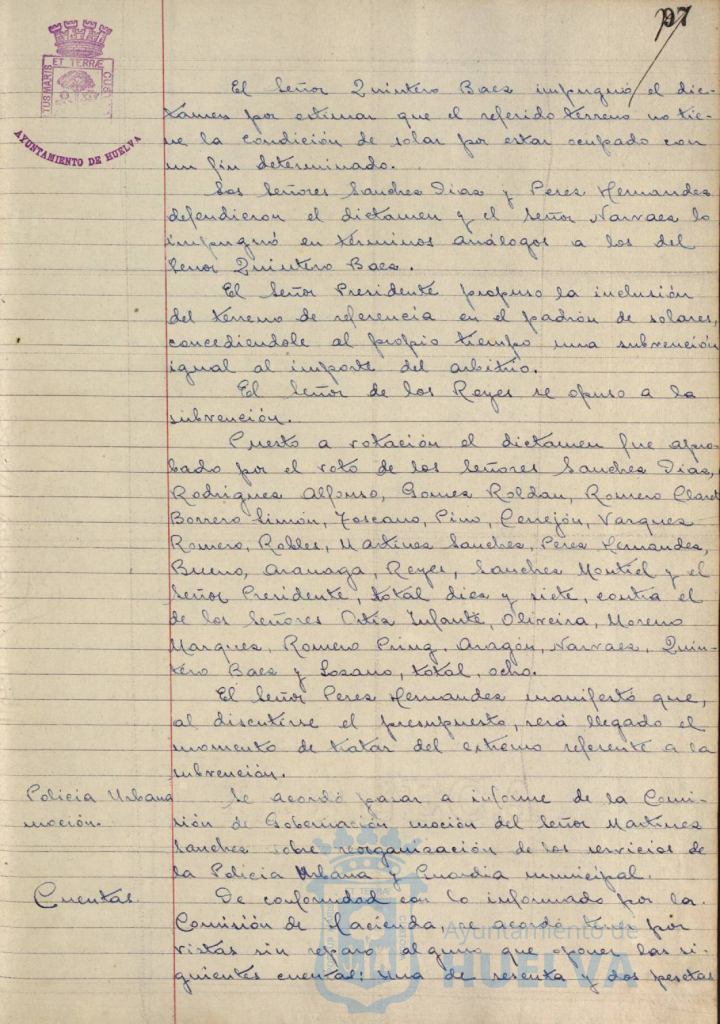 97
ET TERRÆ
TUS MARIS
CUS
AYUNTAMIENTO DE HUELVA
El Señor Quintero Baez impugnó el dic-
tamen por estimar que el referido terreno no tie-
ne la condición de solar por estar ocupado con
un fin determinado.
Los Señores Sanchez Diaz y Perez Hernandez
defendieron el dictamen y el Señor Narvaez lo
impugnó en términos análogos a los del
Señor Quintero Baez.
El Señor Presidente propuso la inclusión
del terreno de referencia en el padrón de solares,
concediendole al propio tiempo una subvención
igual al importe del arbitrio.
El Señor de los Reyes se opuso a la
subvención.
Puesto a votación el dictamen fue apro-
bado por el voto de los Señores Sanchez Diaz,
Rodriguez Alfonso, Gomez Roldan, Romero Claret
Borrero Simón, Toscano, Pino, Cerrejón, Vazquez
Romero, Robles, Martinez Sanchez, Perez Hernandez,
Bueno, Aranaga, Reyes, Sanchez Montiel y el
Señor Presidente, total diez y siete, contra el
de los Señores Ortiz Infante, Oliveira, Moreno
Marquez, Romero Pring, Aragón, Narvaez, Quin-
tero Baez y Lozano, total, ocho.
El Señor Perez Hernandez manifestó que,
al discutirse el presupuesto, será llegado el
momento de tratar del extremo referente a la
subvención.
Policia Urbana
moción.
Se acordó pasar a informe de la Comi-
sión de Gobernación moción del Señor Martinez
Sanchez sobre reorganización de los servicios de
la Policia Urbana y Guardia municipal.
Cuentas.
De conformidad con lo informado por la
Comisión de Hacienda, se acordó tener por
vistas sin reparo alguno que oponer las si-
guientes cuentas: Una de sesenta y dos pesetas
Ayuntamiento de
HUELVA